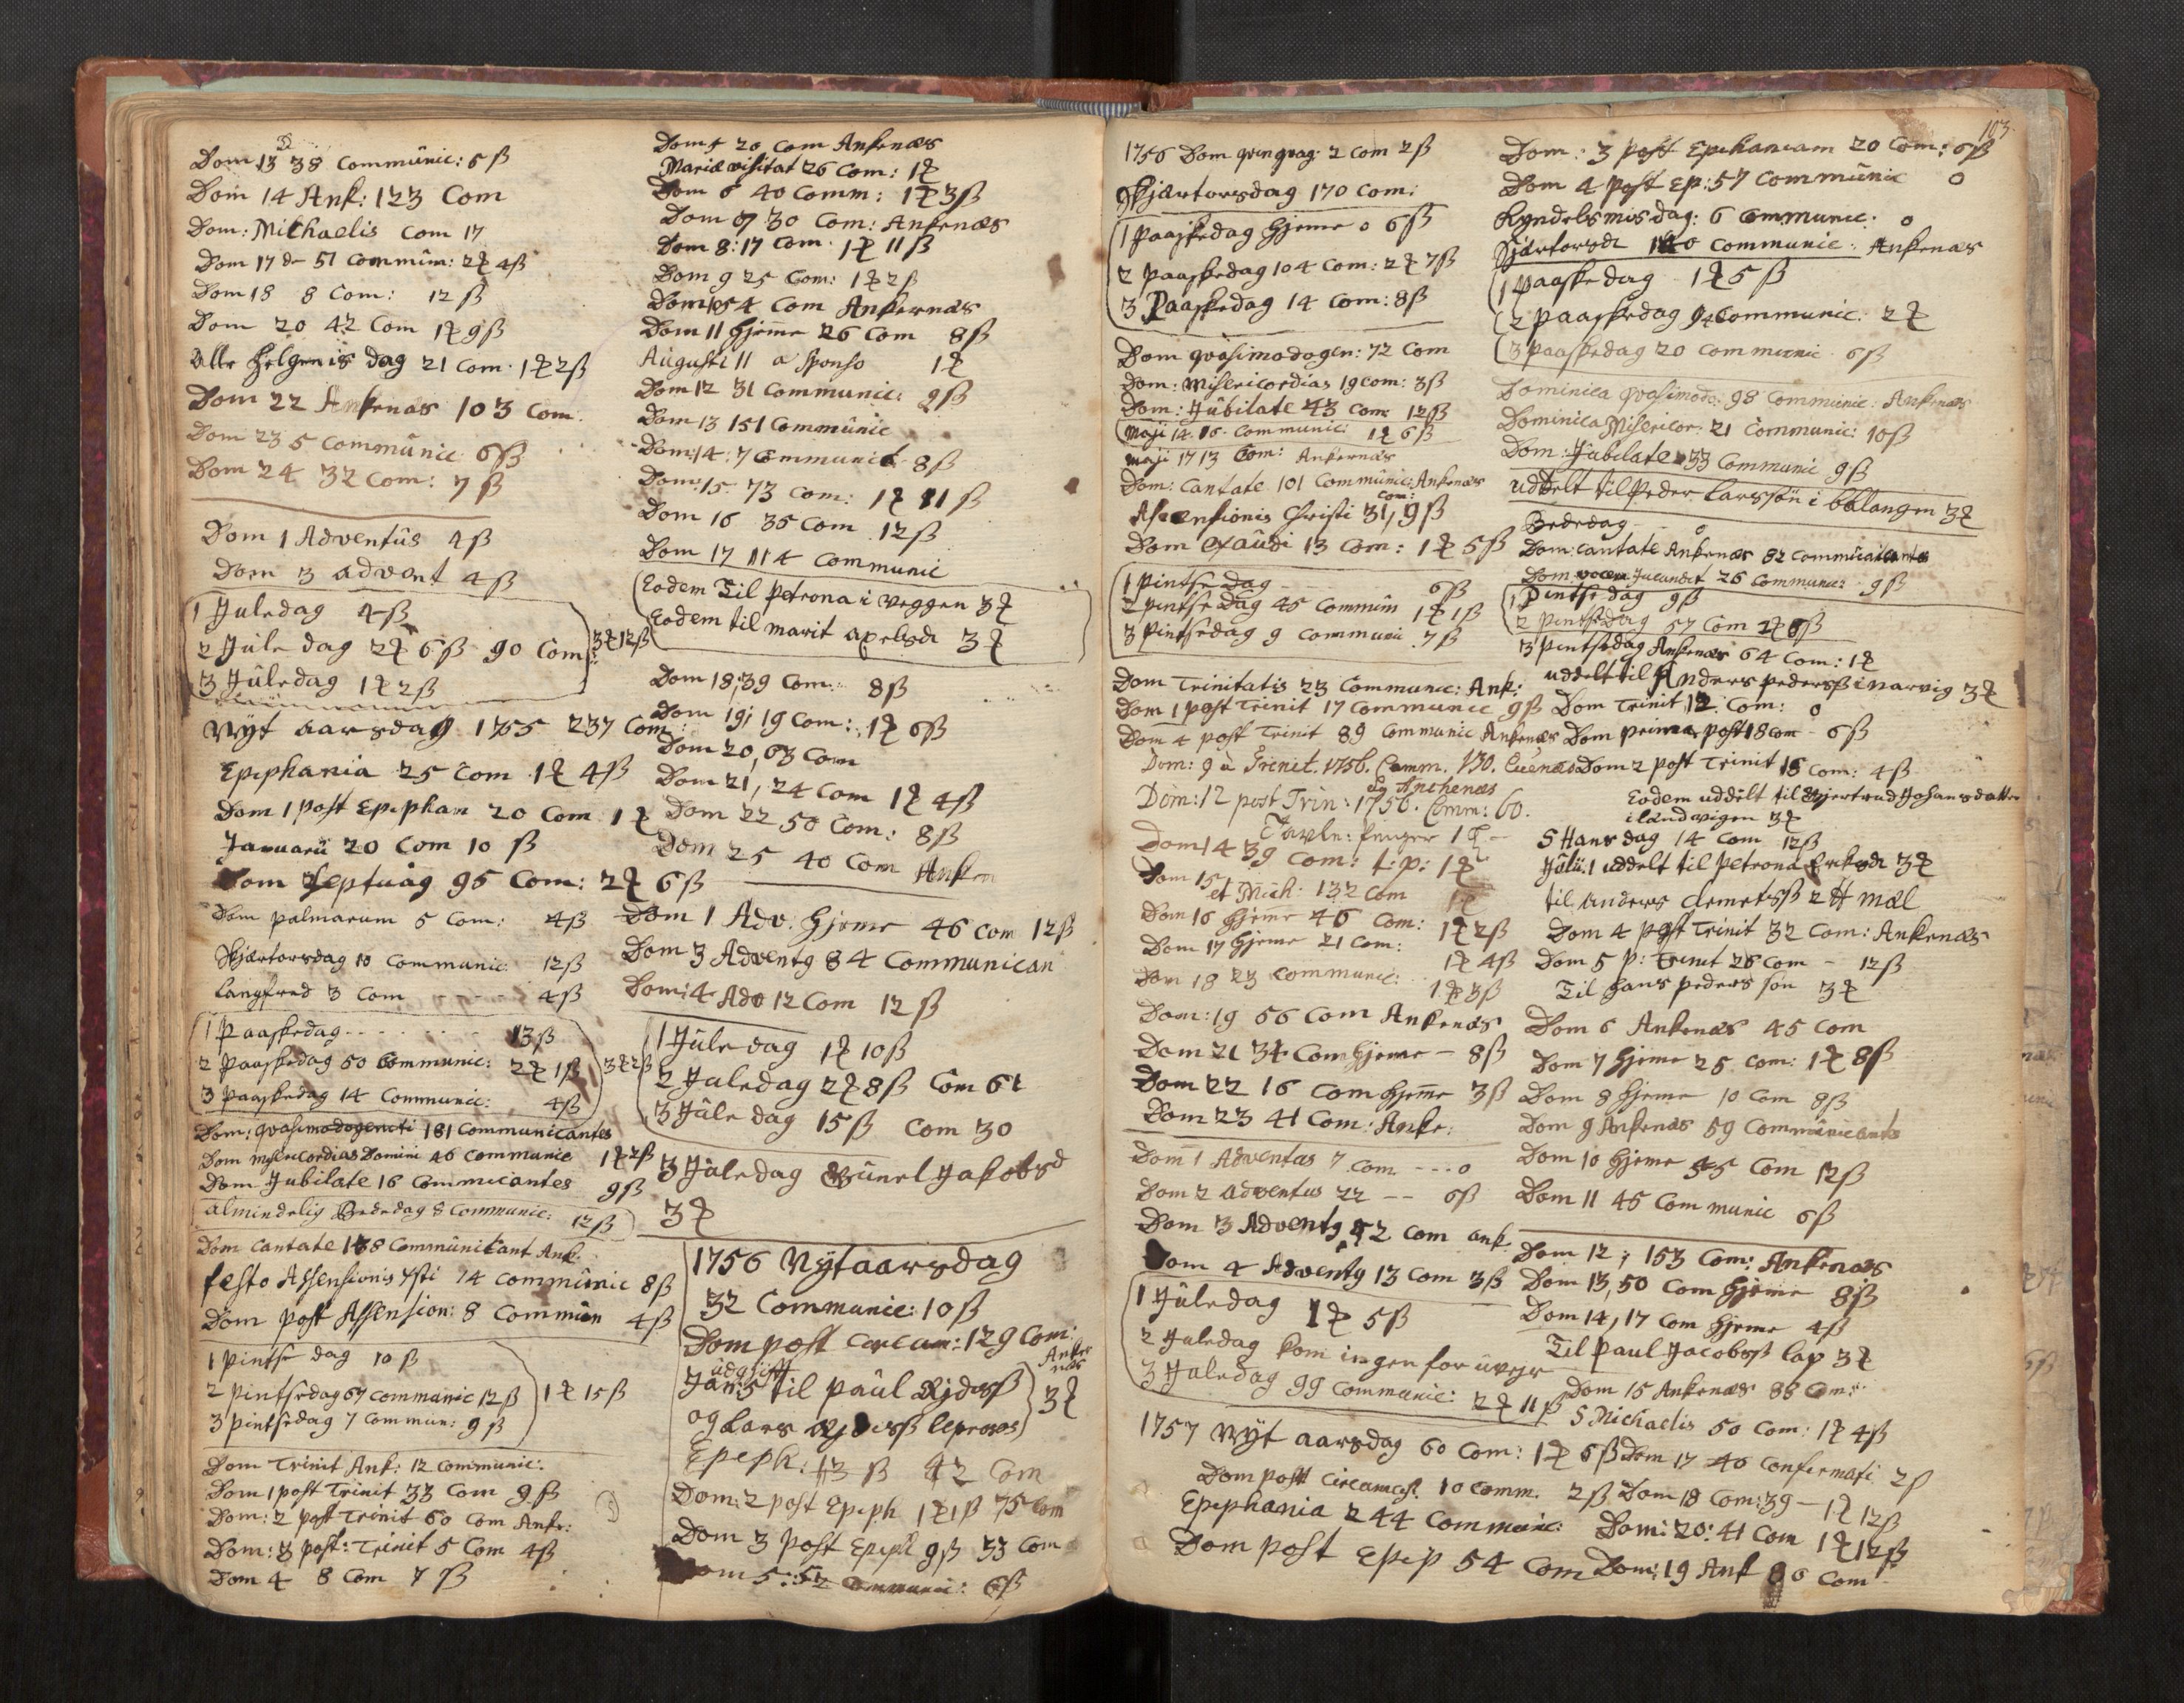 Dom 13 38 Communic: 6 ß
Dom 14 Ank: 123 Com
Dom: Michaelis Com 17
Dom 17 de 51 Commun: 2 ꝶ 4ß
Dom 18 8 Com: 12 ß
Dom 20 42 Com 1ꝶ 9ß
Alle helgenis dag 21 Com. 1ꝶ 2ß
Dom 22 Ankenæs 103 Com.
Dom 23 5 Communic 6ß
Dom 24 32 Com: 7 ß
Dom 1 Adventus 4ß
Dom 3 advent 4ß
1 Juledag 4ß
2 Jule dag 2ꝶ 6ß 90 Com: 3ꝶ 12ß
3 Juledag 1ꝶ 2ß
Nyt aarsdag 1755 237 Com
Epiphania 25 Com 1ꝶ 4ß
Dom 1 post Epiphan 20 Com 1ꝶ
Januarii 20 Com 10 ß
Dom Septuag 95 Com: 2ꝶ 6ß
Dom palmarum 5 Com: 4ß
Skjærtorsdag 10 Communic: 12ß
langfred 3 Com - - - 4ß
1 Paaskedag - - - - 13ß
2 Paaskedag 50 Communic: 2ꝶ 1ß 3ꝶ 2ß
3 paaskedag 14 Communic: 4ß
Dom: qvasimodogeniti 181 Communicantes
Dom misericordias Domini 46 Communic 1ꝶ 2ß
Dom Jubilate 16 Commicantes 9ß
almindelig Bededag 8 Communic: 12ß
Dom Cantate 138 Communicant Ank.
festo Assensionis 14 Communic 8ß
Dom post Assension: 8 Commun 4ß
1 pintse dag 10 ß
2 pintsedag 67 Communic 12 ß 1ꝶ 15ß
3 pintsedag 7 Commun: 9 ß
Dom Trinit Ank: 12 Communic:
Dom 1 post Trinit 33 Com 9 ß
Dom: 2 post Trinit 60 Com Anke:
Dom: 3 post: Trinit 5 Com 4ß
Dom 4 8 Com 7 ß
Dom 5 20 Com Ankenæs
Mariæ visitat 26 Com: 1ꝶ
Dom 6 40 Comm: 1ꝶ 3ß
Dom 7 30 Com: Ankenæs
Dom 8: 17 Com. 1ꝶ 11ß
Dom 9 25 Com: 1ꝶ 2ß
Dom 10 54 Com Ankernæs
Dom 11 hjeme 26 Com 8ß
Augusti 11 a sponso 1ꝶ
Dom 12 31 Communic: 9ß
Dom 13 151 Communic
Dom: 14: 7 Communic 8ß
Dom: 15 73 Com: 1ꝶ 11 ß
Dom 16 35 Com 12ß
Dom 17 114 Communic
Eodem Til petrona i veggen 3ꝶ
Eodem til marit axelsdr 3ꝶ
Dom 18; 39 Com: 8ß
Dom 19; 19 Com: 1ꝶ 6ß
Dom 20, 63 Com
Dom 21, 24 Com 1ꝶ 4ß
Dom 22 50 Com: 8ß
Dom 25 40 Com Anken
Dom 1 Adv. hjeme 46 Com 12ß
Dom 3 Advents 84 Communican
Dom: 4 Adv 12 Com 12 ß
1 Juledag 1ꝶ 10ß
2 Juledag 2ꝶ 8ß Com 61
3 Jule dag 15 ß Com 30
3 Juledag Gunel Jakobsd
3ꝶ
1756 Nytaarsdag
32 Communic: 10ß
Dom post Circum: 129 Com:
Ankernæs
udgift
Jan: 5 til paul
og Lars leprosos 3ꝶ
Epiph: 13 ß 42 Com
Dom: 2 post Epiph 1ꝶ 1ß 75 Com
Dom 3 post Epiph 9ß 33 Com
Dom 5: 52 Communic: 6ß
103.
1756 Dom qvinqvag: 2 Com 2ß
Skjærtorsdag 170 Com:
1 paaskedag hjeme 0 6ß
2 paaskedag 104 Com: 2ꝶ 7ß
3 Paaskedag 14 Com: 8ß
Dom qvasimodogen: 72 Com
Dom: Misericordias 19 Com: 3ß
Dom: Jubilate 43 Com 12ß
Maji 14. 16. Communic: 1ꝶ 6ß
Maji 17 13 Com: Ankernæs
Dom: Cantate 101 Communic: Ankenæs
Com:
Ascensionis Christi 31, 9ß
Dom Exaudi 13 Com: 1ꝶ 5ß
1 Pintse dag 6ß
2 pintse Dag 45 Commun 1ꝶ 1ß
3 Pintsedag 9 Communi 7ß
Dom Trinitatis 23 Communic: Ank:
Dom 1 post Trinit 17 Communic 9ß
Dom 4 post Trinit 89 Communic Ankenæs
Dom: 9 a Trinit. 1756. Comm. 130. Euenæs
og Anchenæs
Dom: 12 post Trin: 1756. Comm: 60.
Tavle: penger 1ꝶ -
Dom 14 39 Com: t: p: 1ꝶ
Dom 15 et Mich: 132 Com 1ꝶ
Dom 16 hjeme 46 Com: 1ꝶ 2ß
Dom 17 hjeme 21 Com: 1ꝶ 4ß
Dom 18 23 Communic: 1ꝶ 3ß
Dom: 19 66 Com Ankenæs
Dom 21 34 Com hjeme - 8ß
Dom 22 16 Com hjeme 3ß
Dom 23 41 Com: Anke:
Dom 1 Adventus 7 Com - - - 0
Dom 2 adventus 22 - - 6ß
Dom 3 Advents 42 Com ank.
Dom 4 Advents 13 Com 3ß
1 Juledag 1ꝶ 5ß
2 Juledag kom ingen for uvejr
3 Juledag 99 Communic: 2ꝶ 11ß
1757 Nyt aarsdag 60 Com: 1ꝶ 6ß
Dom post Circumcis. 10 Comm. 2ß
Epiphania 244 Communic:
Dom post Epip 54 Com
Dom: 3 post Epiphaniam 20 Com: 6ß
Dom 4 post Ep: 57 Communic 0
Kyndelsmisdag: 6 Communic: 0
Communic: Ankenæs
1 paaskedag 1ꝶ 5ß
2 paaskedag 94 Communic: 2ꝶ
3 paaskedag 20 Communic 6ß
Dominica Qvasimodo: 98 Communic: Ankenæs
Dominica Misericor: 21 Communic: 10ß
Dom: Jubilate 33 Communic 9ß
uddelt til Peder Larssøn i 3ꝶ
Bededag - 0
Dom: Cantate Ankenæs 82 Communicantes
Dom vocem Jucundit 26 Communic: 9ß
1 Pintsedag 9ß
2 Pintsedag 57 Com
3 pintsedag Ankenæs 64 Com: 1ꝶ
uddelt til Anders pederss i narvig 3ꝶ
Dom Trinit 12 Com: 0
Dom prima post 18 Com - 6ß
Dom 2 post Trinit 16 Com: 4ß
Eodem uddelt til Gjertrud Johansdatter
i landvigen 3ꝶ
S Hans dag 14 Com 12ß
Julii 1 uddelt til petrona Eriksdr 3ꝶ
til anders clemetsß 2 ℔ mæl
Dom 4 post Trinit 32 Com: Ankenæs
Dom 5 p: Trinit 26 Com - 12ß
Til hans pedersson 3ꝶ
Dom 6 Ankenæs 45 Com
Dom 7 hjeme 25 Com: 1ꝶ 8ß
Dom 8 hjeme 10 Com 8ß
Dom 9 Ankenæs 59 Communicants
Dom 10 hjeme 45 Com 12ß
Dom 11 45 Communic 6ß
Dom 12; 153 Com: Ankenæs
Dom 13, 50 Com hjeme 8ß
Dom 14, 17 Com hjeme 4ß
Til Paul Jacobsß lap 3ꝶ
Dom 15 Ankenæs 88 Com:
S Michaelis 50 Com: 1ꝶ 4ß
Dom 17 40 Confirmati 2ß
Dom 18 Com: 39 - 1ꝶ 12ß
Dom: 20: 41 Com 1ꝶ 12ß
Dom: 19 Ank 86 Com